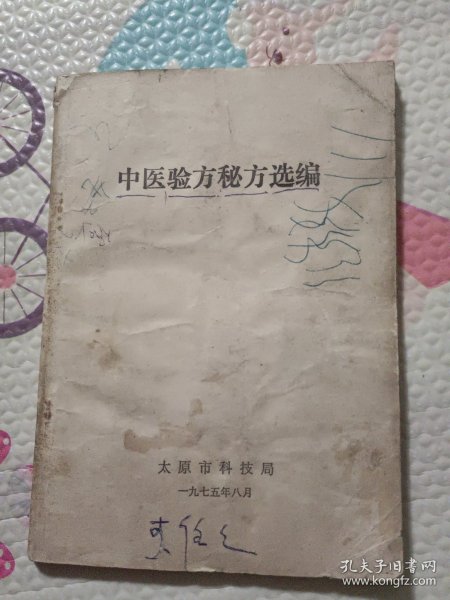 中医验方秘方选编
太原市科技局
一九七五年八月
孔夫子旧书网
www.kongfz.com